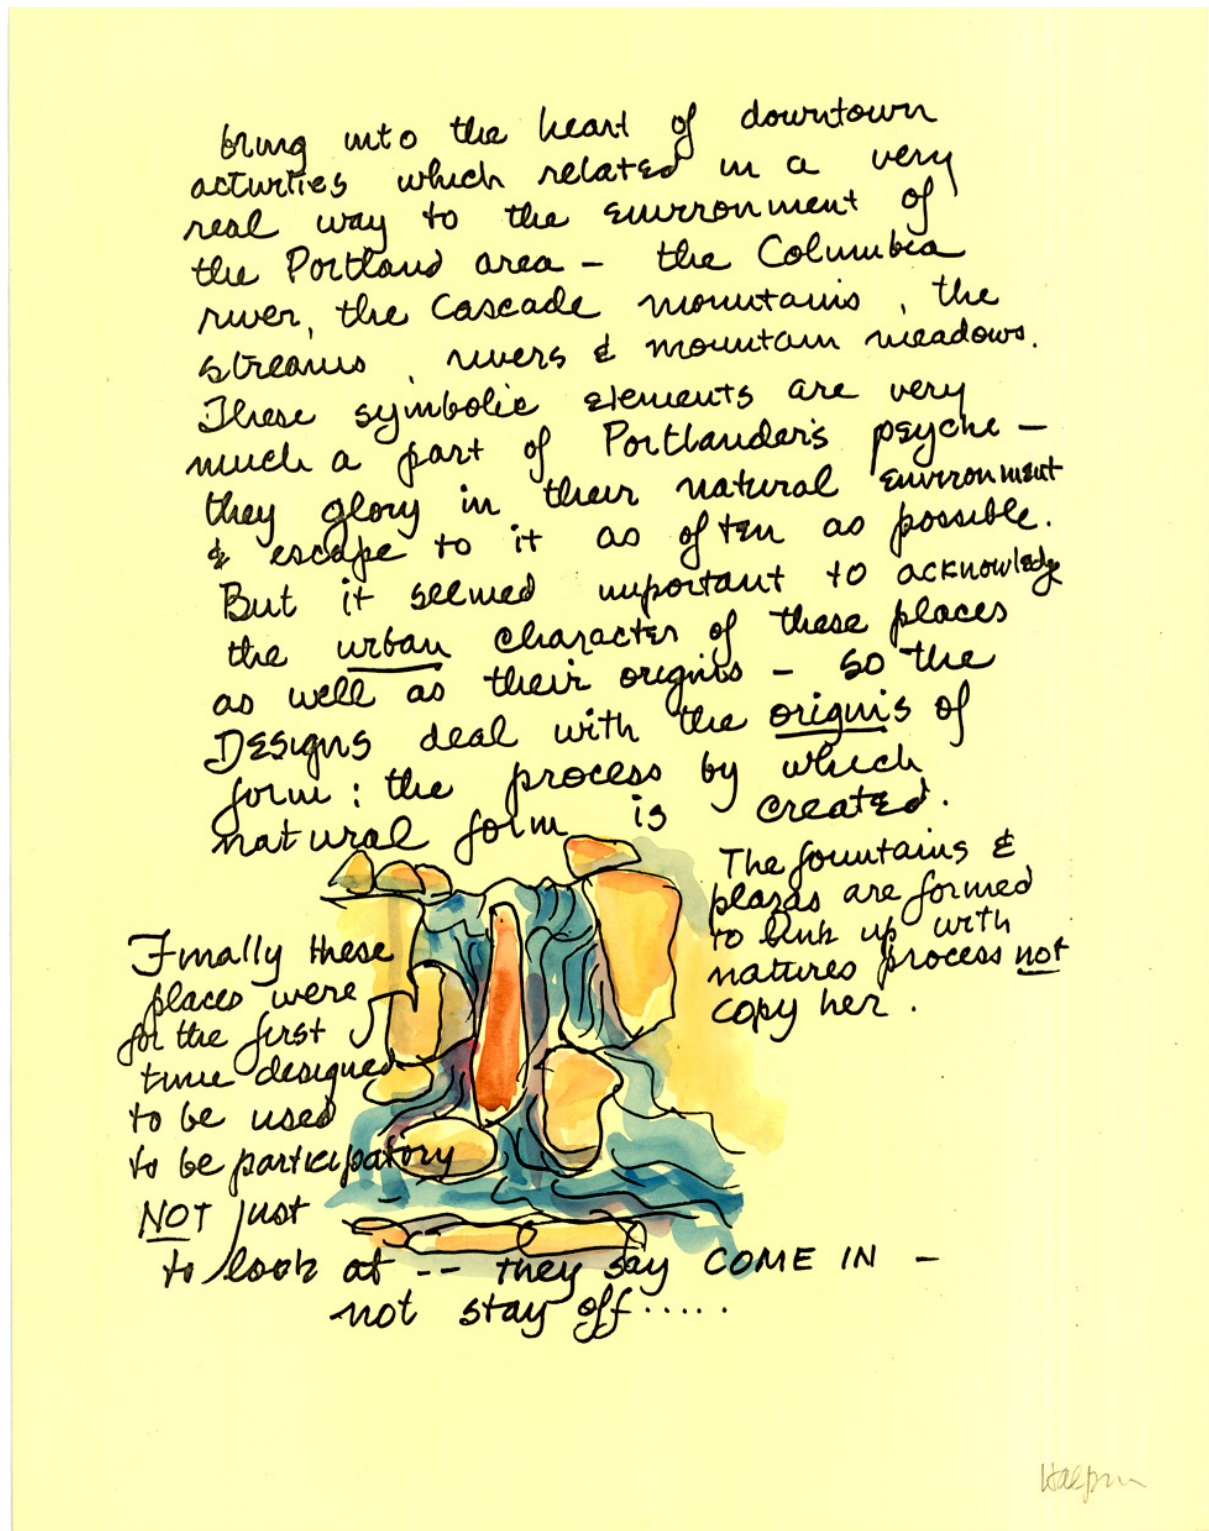 bring into the heart of downtown
activities which related in a very
real way to the environment of
the Portland area – the Columbia
river, the Cascade mountains, the
streams, rivers & mountain meadows.
These symbolic elements are very
much a part of Portlander's psyche –
they glory in their natural environment
& escape to it as often as possible.
But it seemed important to acknowledge
the urban character of these places
as well as their origins – so the
Designs deal with the origins of
form: the process by which
natural form is created.
The fountains &
plazas are formed
to link up with
natures process not
copy her.
Finally these
places were
for the first
time designed
to be used
to be participatory
NOT just
to look at -- they say COME IN –
not stay off.....
Halprin